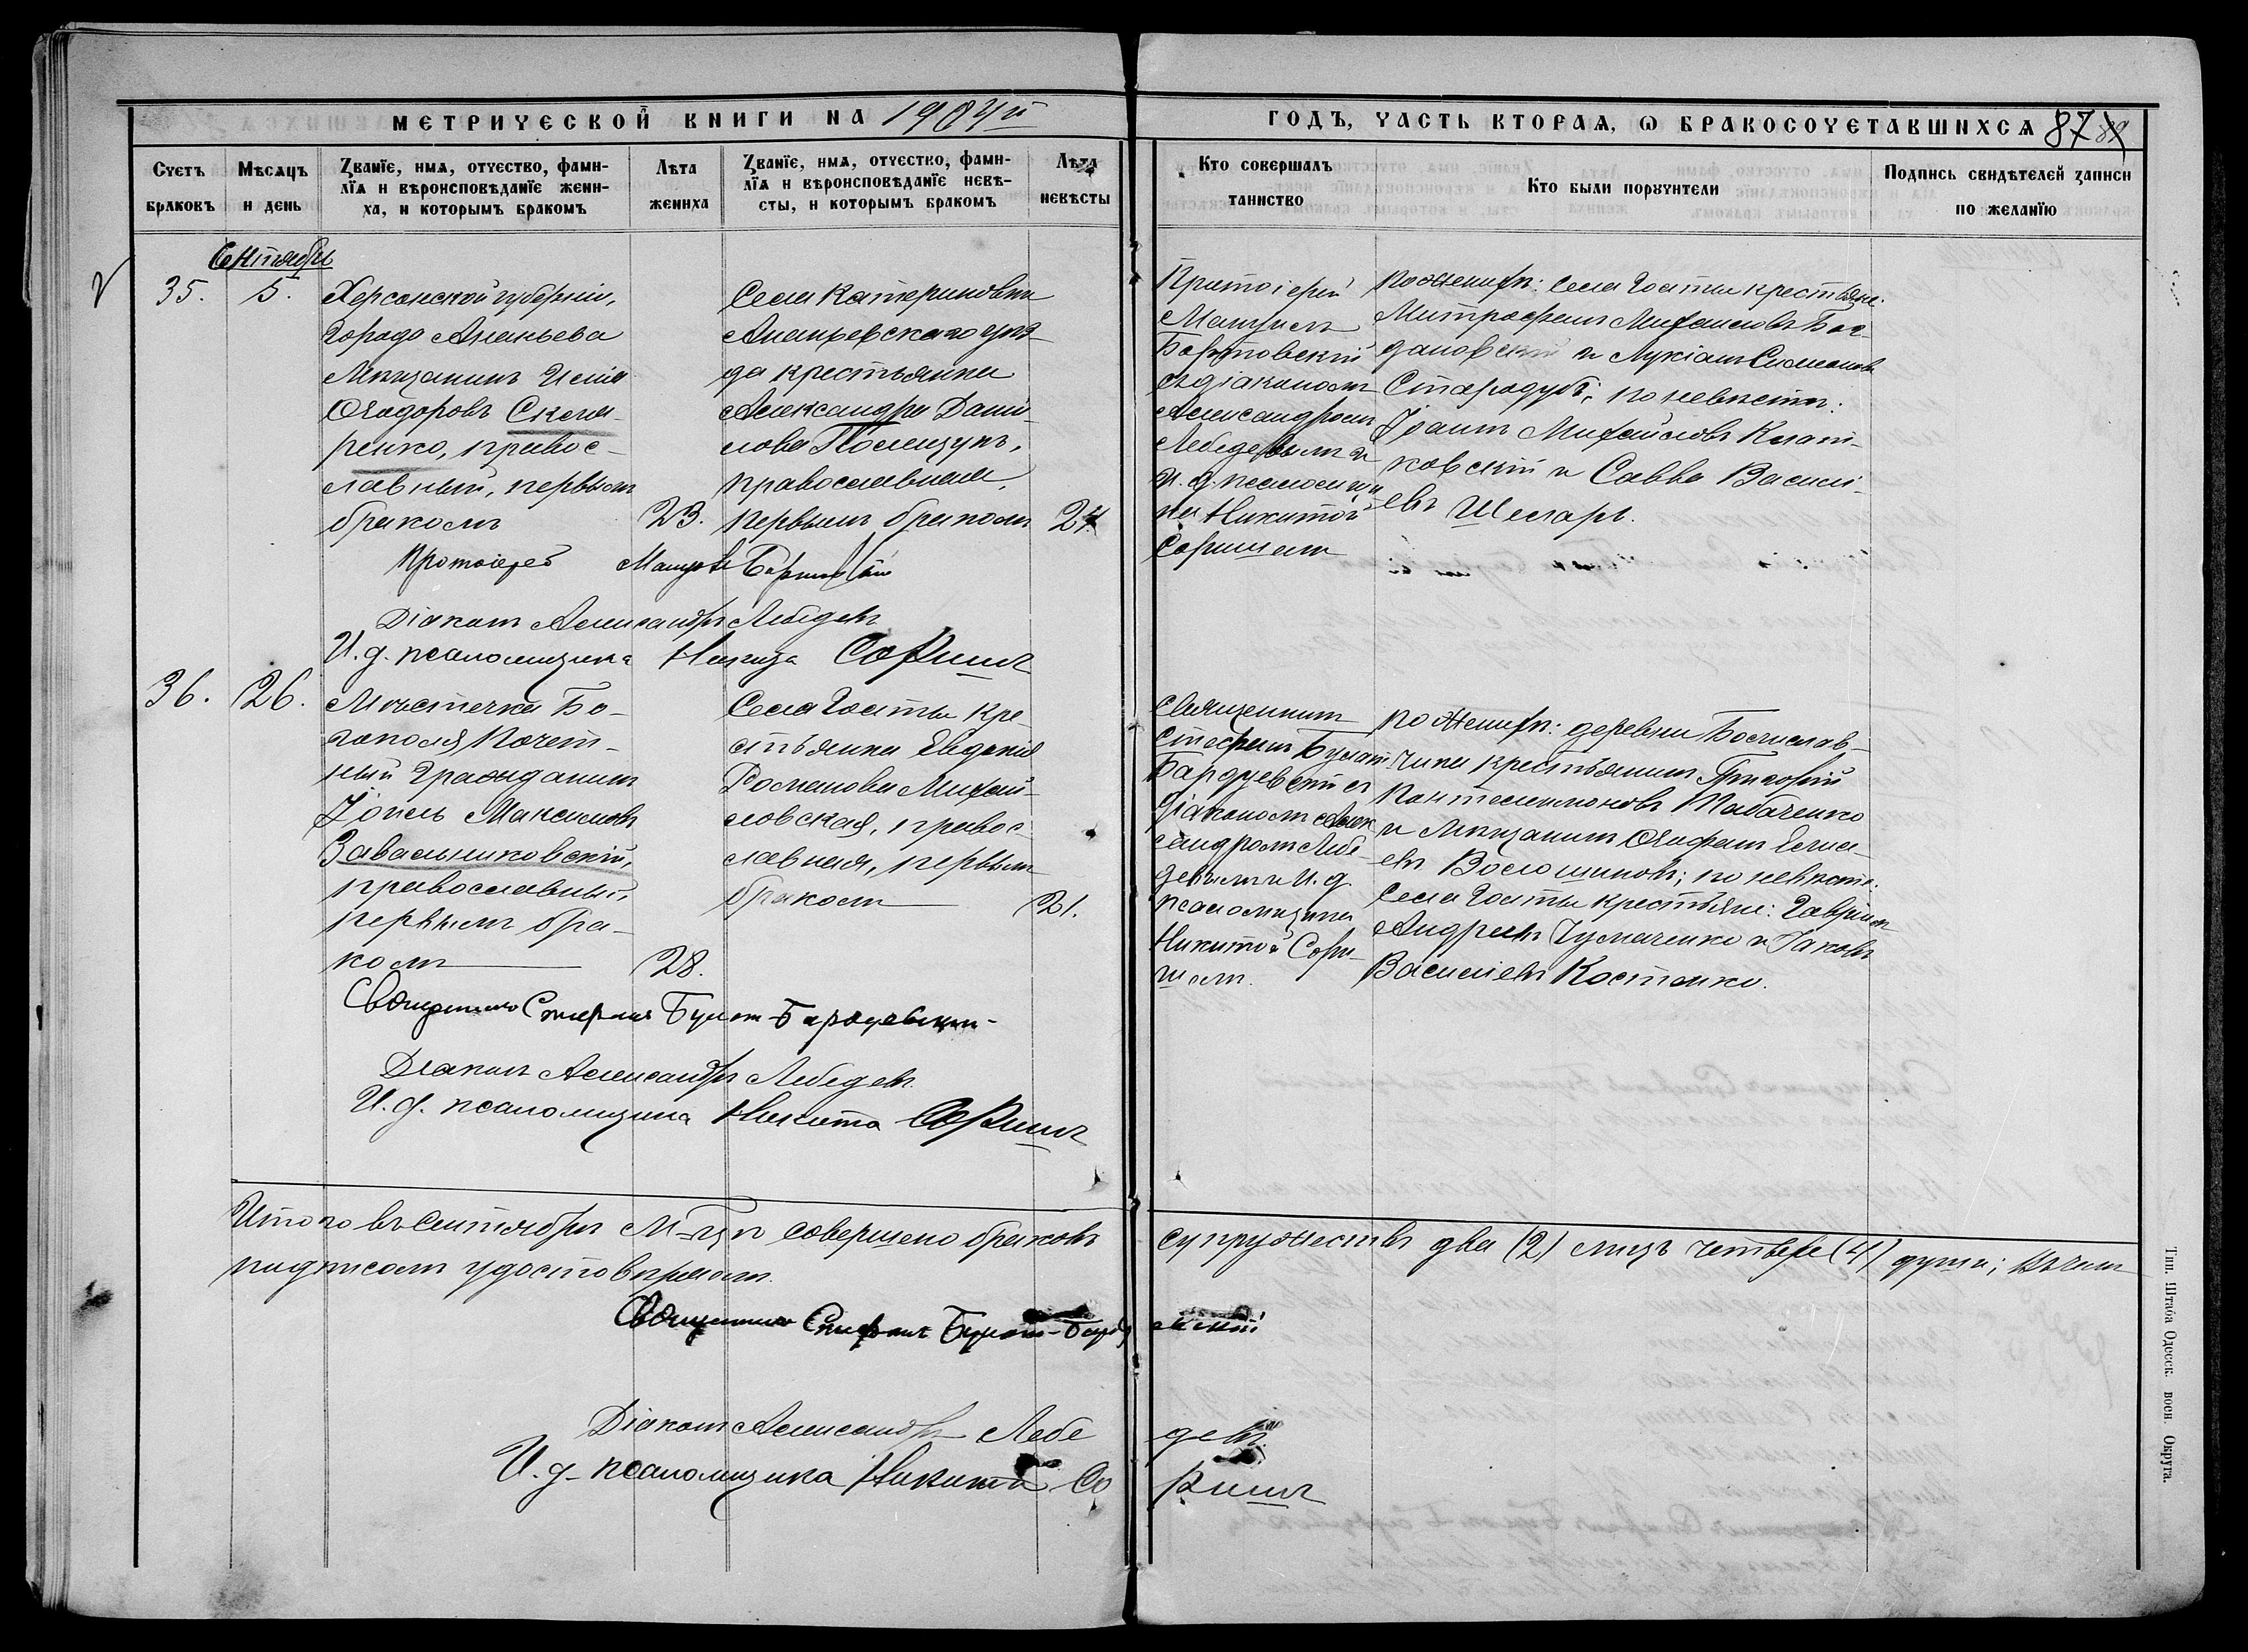 МЕТРИЧЕСКОЙ КНИГИ НА 1904й
ГОДЪ, ЧАСТЬ ВТОРАЯ, Ѡ БРАКОСОЧЕТАВШИХСЯ 87
Счетъ браковъ
Мѣсяцъ и день
Званїе, имя, отчество, фами-
лїя и вѣроисповѣданїе жени-
ха, и которымъ бракомъ
Лѣта жениха
Званїе, имя, отчество, фами-
лїя и вѣроисповѣданїе невѣ-
сты, и которымъ бракомъ
Лѣта невѣсты
Кто совершалъ
таинство
Кто были поручители
Подпись свидѣтелей записи
по желанїю
Сентябрь
35.
5.
Херсонской губерніи,
города Ананьева
мѣщанинъ Илія
Ѳеодоровъ Скля-
ренко, правос-
лавный, первымъ
бракомъ
23.
Села Катериновки
Ананьевскаго уѣз-
да крестьянка
Александра Дани-
лова Полищукъ,
православная,
первымъ бракомъ
24
Протоіерей
Мануилъ
Бортовскій
съ діакономъ
Александромъ
Лебедевымъ и
и. д. псаломщи
ка Никитой
Соришемъ
По женихѣ: села Гольмы крестьяне:
Митрофанъ Михайловъ Бог-
дановскій и Лукіанъ Симеоновъ
Стародубъ; по невѣстѣ:
Іоаннъ Михайловъ Квят-
ковскій и Савва Васили-
евъ Шеларь.
Протоіерей Мануилъ Бортовскій
Діаконъ Александръ Лебедевъ
И. д. псаломщика Никита Соришъ
36.
26.
Мѣстечка Бо-
гополя Почет-
ный Гражданинъ
Іоиль Максимовъ
Завальниковскій,
православный,
первымъ бра-
комъ
28.
Села Гольмы кре-
стьянка Евдокія
Романова Михай-
ловская, правос-
лавная, первымъ
бракомъ
21.
Священникъ
Стефанъ Булат
Бардуевскій съ
діакономъ Алек
сандромъ Лебе-
девымъ и и. д.
псаломщика
Никитой Сори-
шемъ.
По женихѣ: деревни Болеслав-
чика крестьянинъ Григорій
Пантелеимоновъ Табаченко
и мѣщанинъ Стефанъ Елисе-
евъ Волошиновъ; по невѣстѣ:
села Гольмы крестьяне: Гавріилъ
Андреевъ Чумаченко и Іаковъ
Василіевъ Костенко.
Священникъ Стефанъ Булат-Бардуевскій
Діаконъ Александръ Лебедевъ
И. д. псаломщика Никита Соришъ
Итого въ Сентябрѣ м-цѣ совершено браковъ супружествъ два (2) лицъ четыре (4) души; въ чемъ
подписомъ удостовѣряемъ.
Священникъ Стефанъ Булат-Бардуевскій
Діаконъ Александръ Лебедевъ
И. д. псаломщика Никита Соришъ
Тип. Штаба Одесск. воен. Округа.